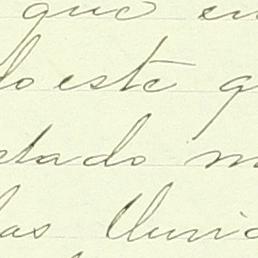 que en
do este q
stado m
las lluvi